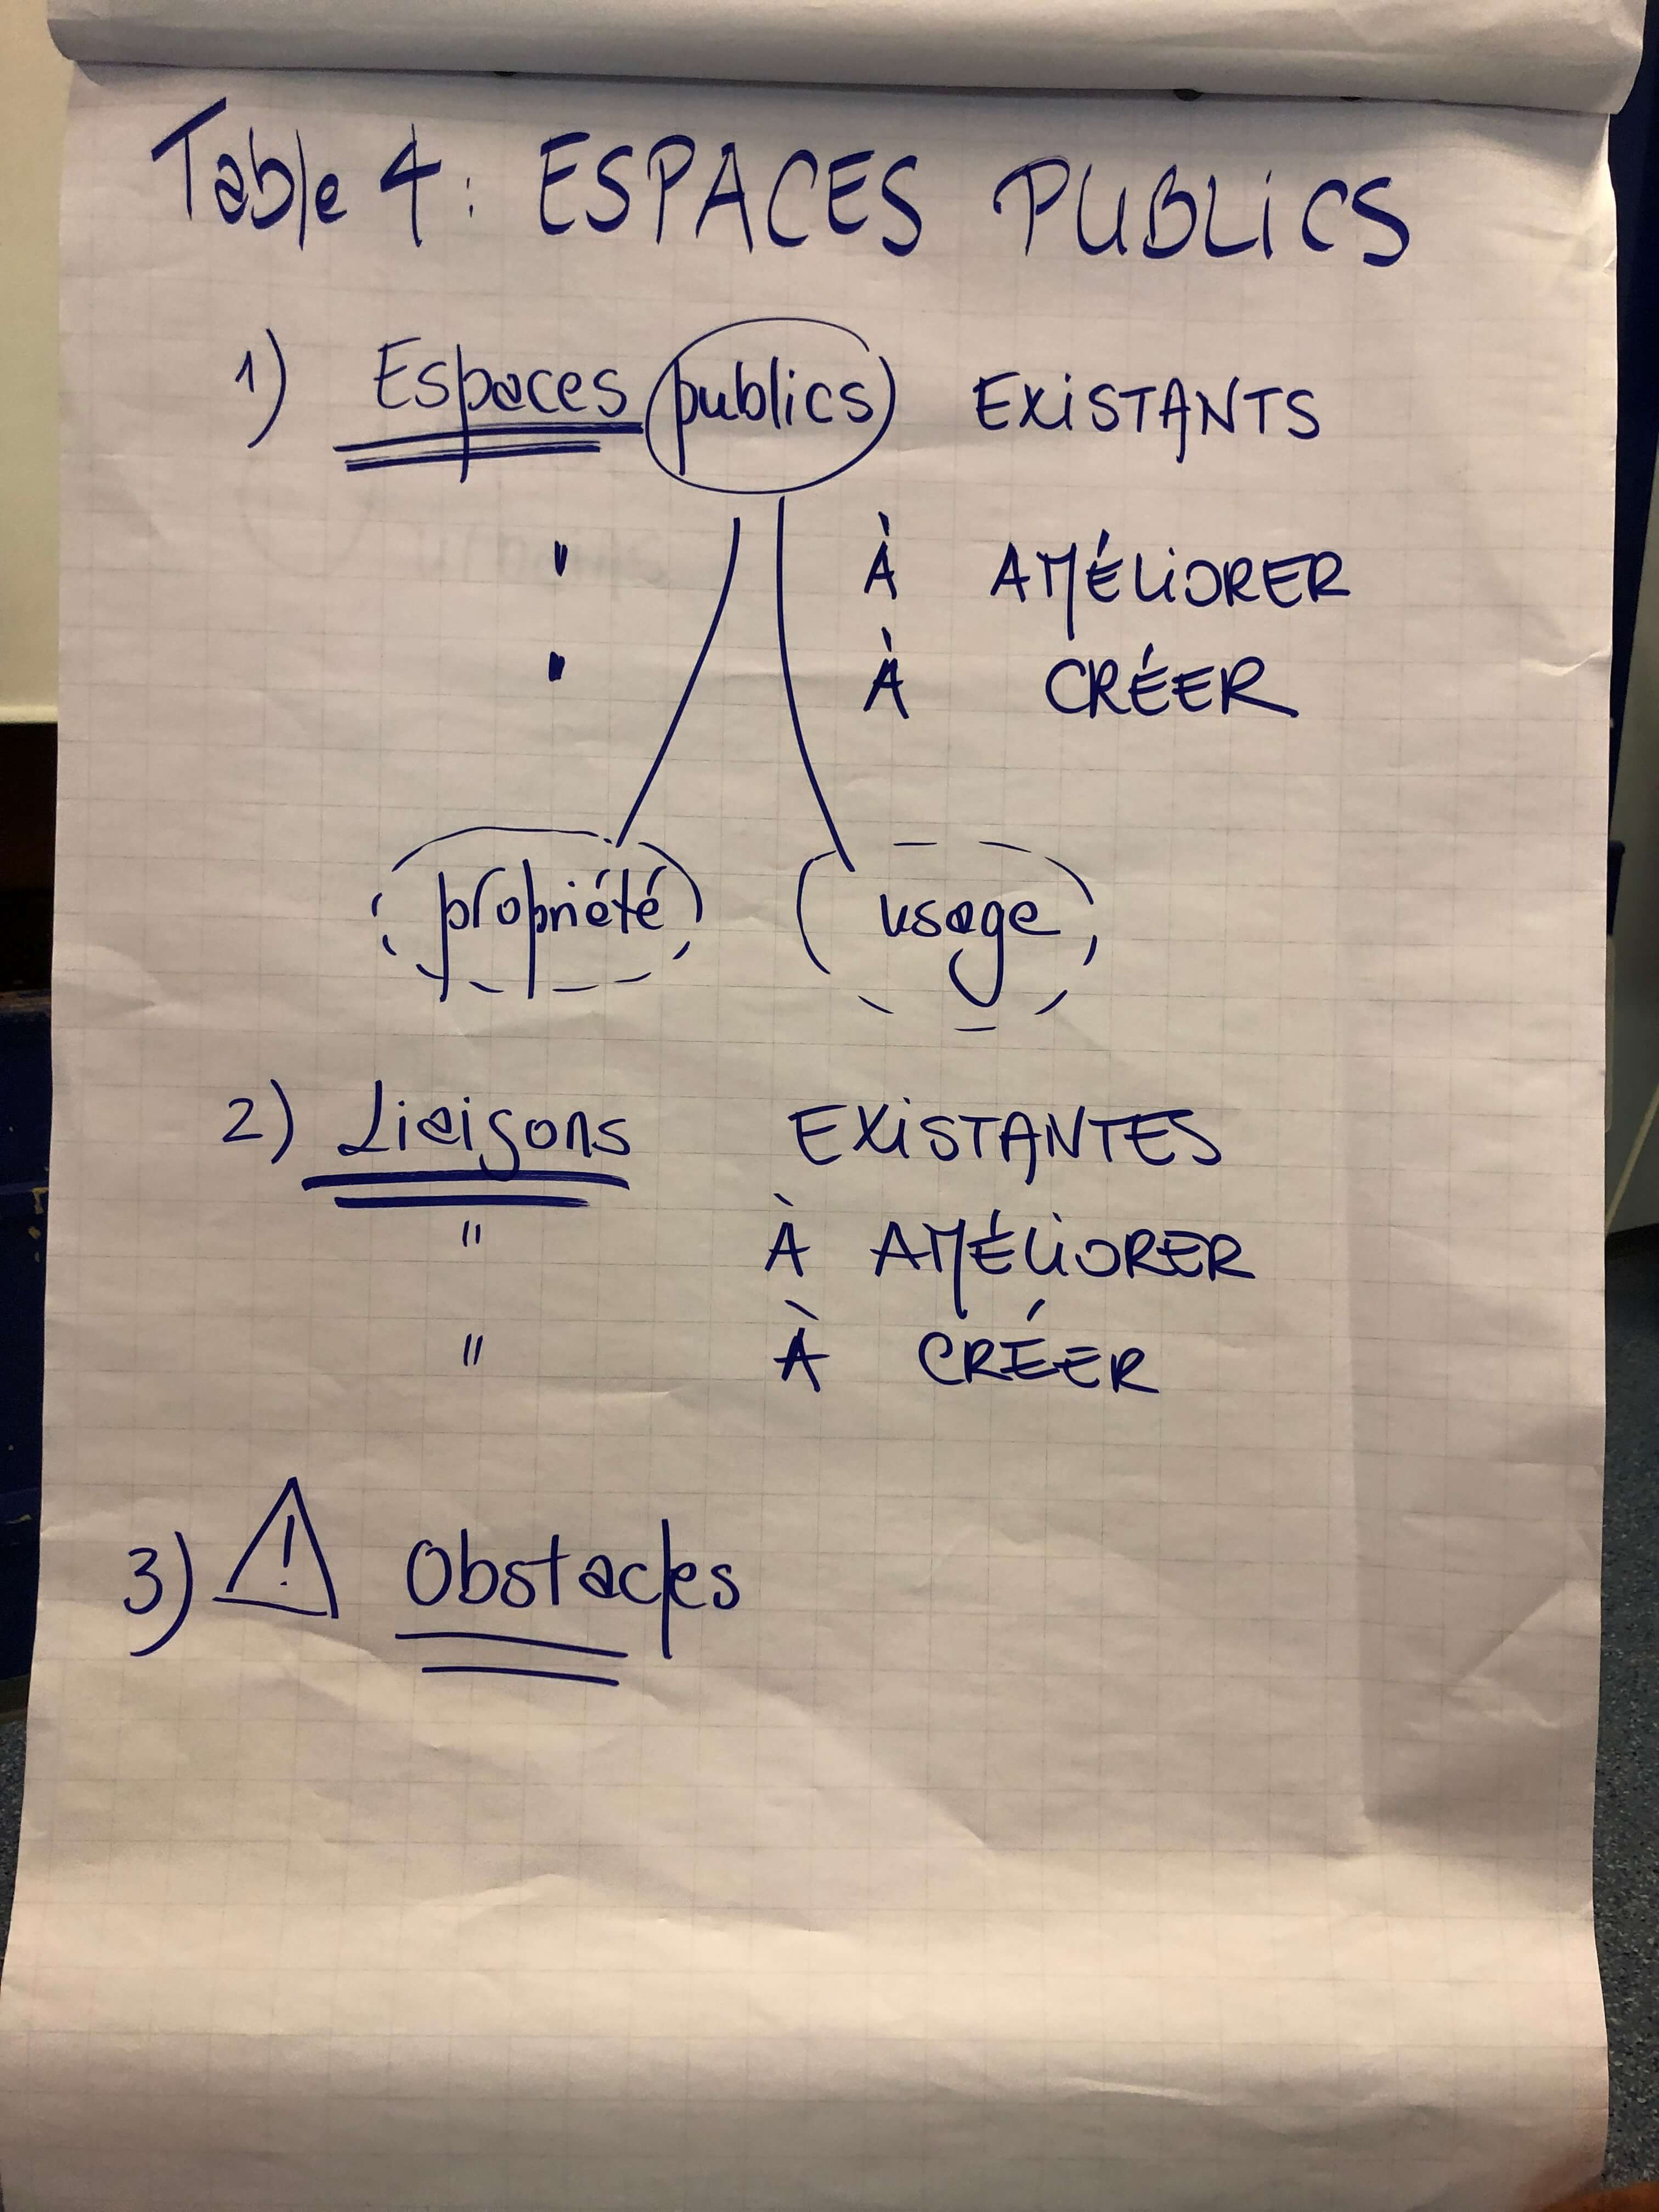 Table 4 : ESPACES PUBLICS
1) Espaces publics EXISTANTS
" À AMÉLIORER
" À CRÉER
propriété usage
2) Liaisons EXISTANTES
" À AMÉLIORER
" À CRÉER
3) ! Obstacles